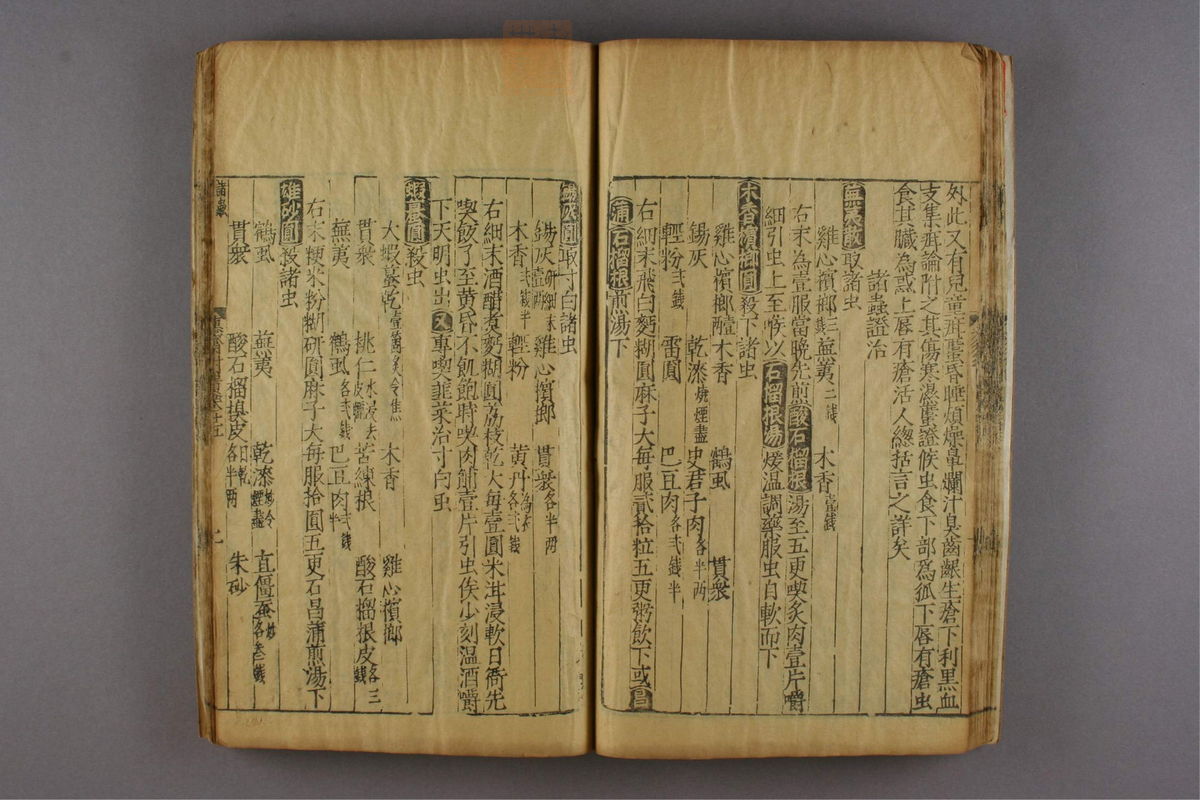 外此又有兒童疳䘌昏睡煩燥鼻爛汁臭齒齦生瘡下利黑血
支集疳論附之其傷寒濕䘌證候虫食下部爲狐下唇有瘡虫
食其臟為惑上唇有瘡活人總括言之詳矣
諸蟲證治
蕪荑散取諸虫
雞心檳榔三錢 蕪荑二錢 木香壹錢
右末為壹服當晚先煎酸石榴根湯至五更喫炙肉壹片嚼
細引虫上至喉以石榴根湯煖温調藥服虫自軟而下
木香檳榔圓殺下諸虫
雞心檳榔壹兩 木香 鶴虱 貫衆
錫灰 乾漆燒煙盡 史君子肉各半兩
輕粉弍錢 雷圓 巴豆肉各弍錢半
右細末飛白麪糊圓麻子大每服貳拾粒五更粥飲下或菖
蒲石榴根煎湯下
錫灰圓取寸白諸虫
錫灰壹兩研細末 雞心檳榔 貫衆各半兩
木香弍錢半 輕粉 黄丹為衣各弍錢
右細末酒醋煮麪糊圓荔枝乾大每壹圓米泔浸軟日晡先
喫飯了至黄昏不飢飽時喫肉鮓壹片引虫俟少刻温酒嚼
下天明虫出又專喫韮菜治寸白虫
蝦蟇圓殺虫
大蝦蟇乾壹箇炙令焦 木香 雞心檳榔
貫衆 桃仁水浸去皮焙 苦練根 酸石榴根皮各三錢
蕪荑 鶴虱各弍錢 巴豆肉弍錢半
右末粳米粉糊研圓麻子大每服拾圓五更石昌蒲煎湯下
雄砂圓殺諸虫
鶴虱 蕪荑 乾漆炒令煙盡 直僵蚕炒各叁錢
貫衆 酸石榴根皮日乾各半兩 朱砂
諸蟲